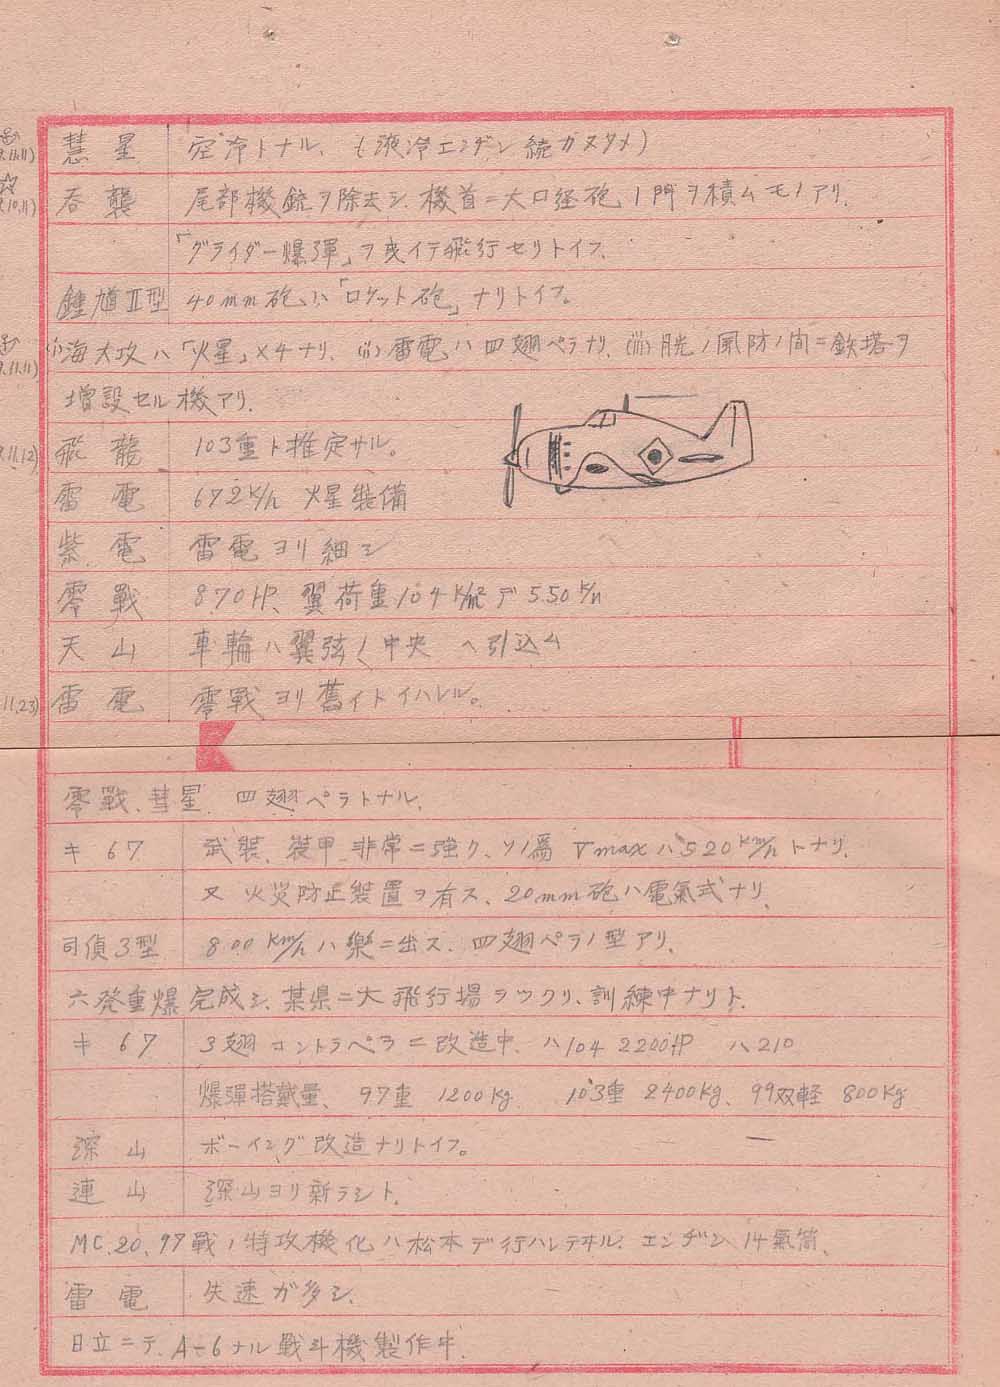 彗星 空冷トナル、(液冷エンヂン続カヌタメ)
呑襲 尾部機銃ヲ除去シ、機首ニ大口径砲、1門ヲ積ムモノアリ.
「グライダー爆弾」ヲ曳イテ飛行セリトイフ.
鍾馗Ⅱ型 40mm砲ハ「ロケット砲」ナリトイフ。
(i)海大攻ハ「火星」×4ナリ. (ii)雷電ハ四翅ペラナリ. (iii)胱ノ風防ノ間ニ鉄塔ヲ
増設セル機アリ.
11.12) 飛龍 103重ト推定サル。
雷電 672K/h 火星装備
紫電 雷電ヨリ細シ
零戰 870HP、翼荷重104K/m² デ550K/h
天山 車輪ハ翼弦ノ中央ヘ引込ム
11.23) 雷電 零戰ヨリ舊イトイハレル。
零戰、彗星、四翅ペラトナル.
キ67 武装、装甲、非常ニ強ク、ソノ為Vmaxハ520km/hトナリ.
又火災防止装置ヲ有ス、20mm砲ハ電氣式ナリ.
司偵3型 800km/hハ樂ニ出ス. 四翅ペラノ型アリ.
六発重爆完成シ、某県ニ大飛行場ヲツクリ、訓練中ナリト.
キ67 3翅コントラペラニ改造中. ハ104 2200HP ハ210
爆弾搭載量、97重 1200Kg. 103重 2400Kg、99双軽 800Kg
深山 ボーイング改造ナリトイフ。
連山 深山ヨリ新ラシト.
MC.20、97戰ノ特攻機化ハ松本デ行ハレテオル. エンヂン14氣筒、
雷電 失速ガ多シ.
日立ニテ、A-6ナル戰斗機製作中.